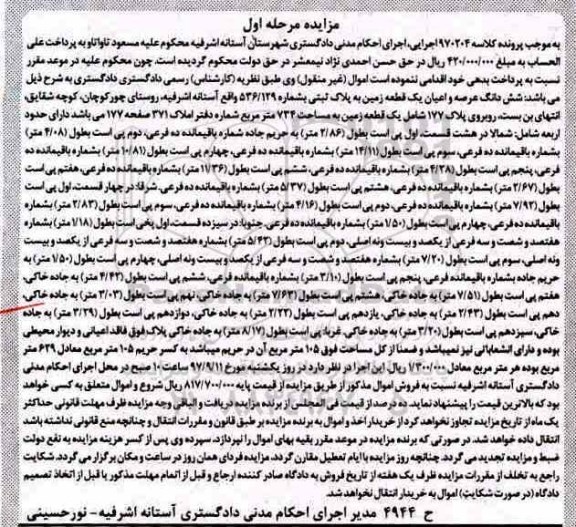 مزایده مرحله اول
به موجب پرونده کلاسه ۹۷۰۲۰۴ اجرایی، اجرای احکام مدنی دادگستری شهرستان آستانه اشرفیه محکوم علیه مسعود تاواتاو به پرداخت علی
الحساب به مبلغ ۴۲۰/۰۰۰/۰۰۰ ریال در حق حسن احمدی نژاد نیمعشر در حق دولت محکوم گردیده است. چون محکوم علیه در موعد مقرر
نسبت به پرداخت بدهی خود اقدامی ننموده است اموال (غیر منقول) وی طبق نظریه (کارشناس) رسمی دادگستری دادگستری به شرح ذیل
می باشد: شش دانگ عرصه و اعیان یک قطعه زمین به پلاک ثبتی بشماره ۵۳۶/۱۲۹ واقع آستانه اشرفیه، روستای چورکوچان، کوچه شقایق،
انتهای بن بست، روبروی پلاک ۱۷۷ شامل یک قطعه زمین به مساحت ۷۳۴ متر مربع شماره دفتر املاک ۳۷۱ صفحه ۱۷۷ می باشد دارای حدود
اربعه شامل: شمالا در هشت قسمت، اول پی است بطول (۲/۸۶ متر) به حریم جاده شماره باقیمانده ده فرعی، دوم پی است بطول (۴/۰۸ متر)
بشماره باقیمانده ده فرعی، سوم پی است بطول (۱۴/۱۱ متر) بشماره باقیمانده ده فرعی، چهارم پی است بطول (۱۰/۸۱ متر) بشماره باقیمانده ده
فرعی، پنجم پی است بطول (۴/۳۸ متر) بشماره باقیمانده ده فرعی، ششم پی است بطول (۱۱/۳۶ متر) بشماره باقیمانده ده فرعی، هفتم پی است
بطول (۲/۶۷ متر) بشماره باقیمانده ده فرعی، هشتم پی است بطول (۵/۳۷ متر) بشماره باقیمانده ده فرعی. شرقا: در چهار قسمت، اول پی است
بطول (۷/۹۲ متر) بشماره باقیمانده ده فرعی، دوم پی است بطول (۴/۱۶ متر) بشماره باقیمانده ده فرعی، سوم پی است بطول (۲/۸۳ متر) بشماره
باقیمانده ده فرعی، چهارم پی است بطول (۱/۵۰ متر) بشماره باقیمانده ده فرعی، جنوبا: در سیزده قسمت، اول پخی است بطول (۱/۱۸ متر) بشماره
هفتصد و شصت و سه فرعی از یکصد و بیست ونه اصلی، دوم پی است بطول (۵/۴۳ متر) بشماره هفتصد و شصت و سه فرعی از یکصد و بیست
ونه اصلی، سوم پی است بطول (۷/۲۰ متر) بشماره هفتصد و شصت و سه فرعی از یکصد و بیست ونه اصلی، چهارم پی است بطول (۱/۵۰ متر) به
حریم جاده بشماره باقیمانده فرعی، پنجم پی است بطول (۳/۱۰ متر) بشماره باقیمانده فرعی، ششم پی است بطول (۴/۴۲ متر) به جاده خاکی،
هفتم پی است بطول (۷/۵۱ متر) به جاده خاکی، هشتم پی است بطول (۷/۶۳ متر) به جاده خاکی، نهم پی است بطول (۳/۰۳ متر) به جاده خاکی،
دهم پی است بطول (۲/۴۳ متر) به جاده خاکی، یازدهم پی است بطول (۲/۲۲ متر) به جاده خاکی، دوازدهم پی است بطول (۳/۲۹ متر) به جاده
خاکی، سیزدهم پی است بطول (۳/۲۰ متر) به جاده خاکی. غربا: پی است بطول (۸/۱۷ متر) به جاده خاکی پلاک فوق فاقد اعیانی و دیوار محیطی
بوده و دارای انشعاباتی نیز نمیباشد و ضمنا از کل مساحت فوق ۱۰۵ متر مربع آن در حریم میباشد به کسر حریم ۱۰۵ متر مربع معادل ۶۲۹ متر
مربع بوده هر متر مربع معادل ۱/۳۰۰/۰۰۰ ریال این اجرا در نظر دارد در روز یکشنبه مورخ ۹۷/۹/۱۱ ساعت ۱۰ صبح در محل اجرای احکام مدنی
دادگستری آستانه اشرفیه نسبت به فروش اموال مذکور از طریق مزایده از قیمت پایه ۸۱۷/۷۰۰/۰۰۰ ریال شروع و اموال متعلق به کسی خواهد
بود که بالاترین قیمت را پیشنهاد نماید. ده درصد از قیمت فی المجلس از برنده مزایده دریافت و الباقی وجه مزایده ظرف مهلت قانونی حداکثر
یک ماه از تاریخ مزایده تجاوز نخواهد کرد از خریدار اخذ و اموال به برنده مزایده بر طبق قانون و مقررات انتقال و چنانچه منع قانونی نداشته باشد
انتقال داده خواهد شد. در صورتی که برنده مزایده در موعد مقرر بقیه بهای اموال را نپردازد، سپرده وی پس از کسر هزینه مزایده به نفع دولت
ضبط و مزایده تجدید می گردد. چنانچه روز مزایده با ایام تعطیل مقارن گردد، مزایده فردای همان روز در ساعت و مکان برگزار می گردد. شکایت
راجع به تخلف از مقررات مزایده ظرف یک هفته از تاریخ فروش به دادگاه صادر کننده ارجاع و قبل از اتمام مهلت مذکور یا قبل از اتخاذ تصمیم
دادگاه (در صورت شکایت) اموال به خریدار انتقال نخواهد شد.
ح ۴۹۴۴ مدیر اجرای احکام مدنی دادگستری آستانه اشرفیه- نورحسینی